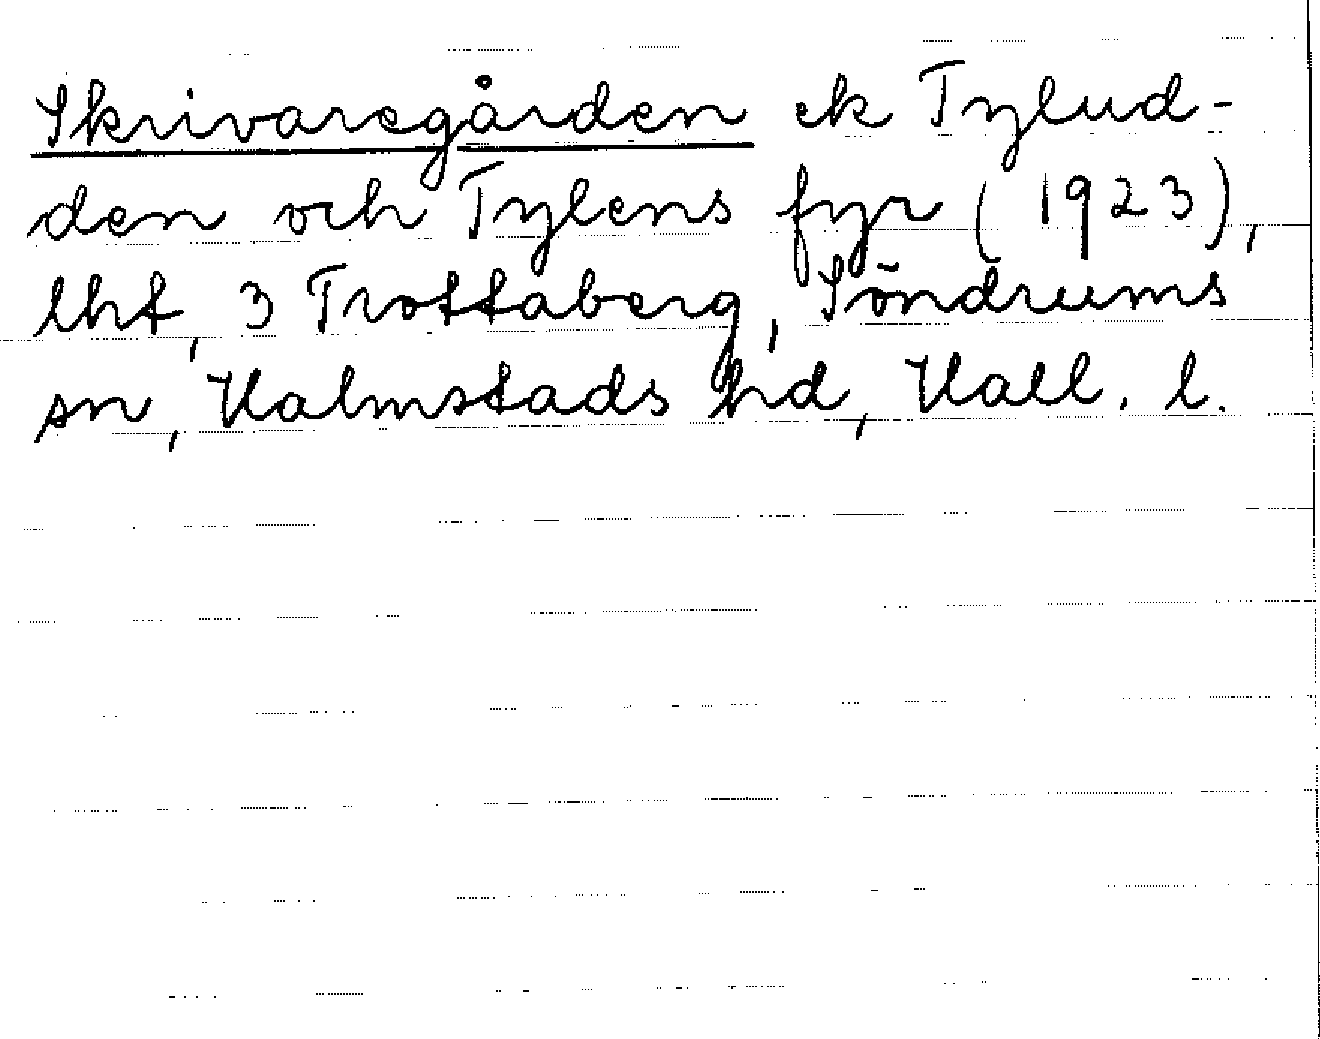 Skrivaregården ek Tylud-
den och Tylens fyr (1923),
lht, 3 Trottaberg, Söndrums
sn, Halmstads hd, Hall. l.